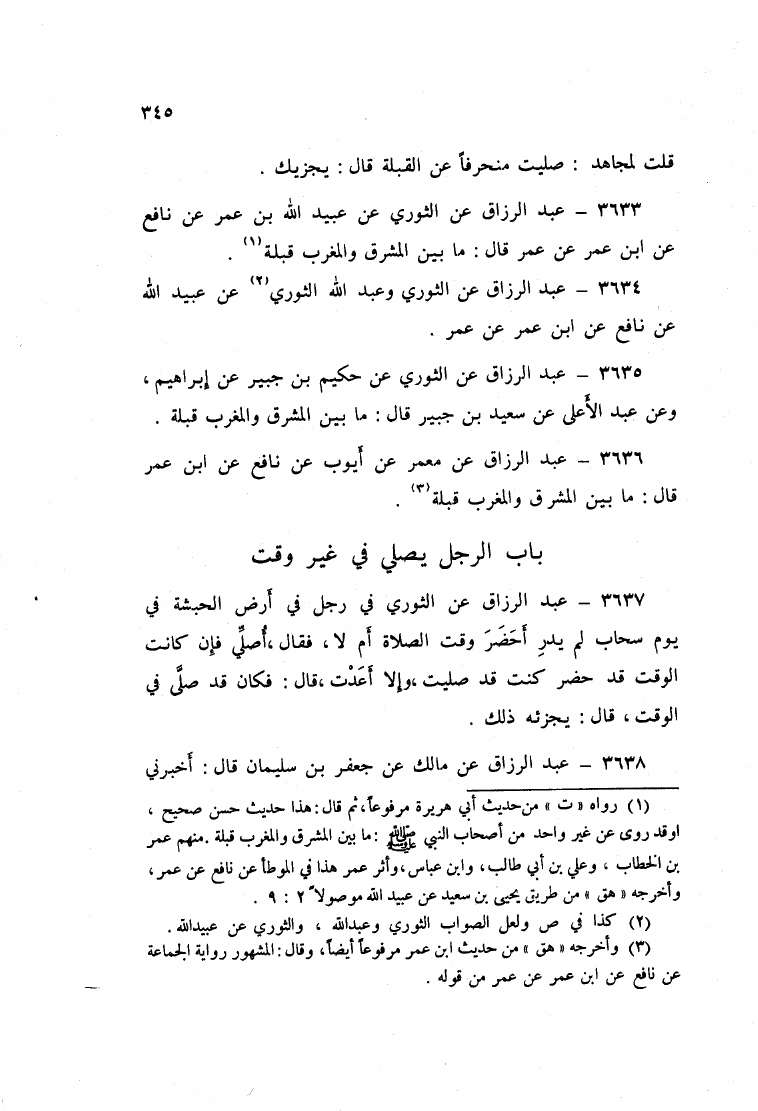 ٣٤٥
قلت لمجاهد : صليت منحرفاً عن القبلة قال : يجزيك .
٣٦٣٣ – عبد الرزاق عن الثوري عن عبيد الله بن عمر عن نافع
عن ابن عمر عن عمر قال : ما بين المشرق والمغرب قبلة(١) .
٣٦٣٤ – عبد الرزاق عن الثوري وعبد الله الثوري(٢) عن عبيد الله
عن نافع عن ابن عمر عن عمر .
٣٦٣٥ – عبد الرزاق عن الثوري عن حكيم بن جبير عن إبراهيم ،
وعن عبد الأعلى عن سعيد بن جبير قال : ما بين المشرق والمغرب قبلة .
٣٦٣٦ – عبد الرزاق عن معمر عن أيوب عن نافع عن ابن عمر
قال : ما بين المشرق والمغرب قبلة(٣) .
باب الرجل يصلي في غير وقت
٣٦٣٧ – عبد الرزاق عن الثوري في رجل في أرض الحبشة في
يوم سحاب لم يدرِ أَحَضَرَ وقت الصلاة أم لا ، فقال ،أُصلِّي فإن كانت
الوقت قد حضر كنت قد صليت ،وإلا أَعَدْت ،قال : فكان قد صلَّى في
الوقت ، قال : يجزئه ذلك .
٣٦٣٨ – عبد الرزاق عن مالك عن جعفر بن سليمان قال : أخبرني
(١) رواه « ت » من حديث أبي هريرة مرفوعاً، ثم قال : هذا حديث حسن صحيح ،
اوقد روى عن غير واحد من أصحاب النبي ﷺ : ما بين المشرق والمغرب قبلة .منهم عمر
بن الخطاب ، وعلي بن أبي طالب، وابن عباس، وأثر عمر هذا في الموطأ عن نافع عن عمر ،
وأخرجه « هق » من طريق يحيى بن سعيد عن عبيد الله موصولاً ٢ : ٩ .
(٢) كذا في ص ولعل الصواب الثوري وعبدالله ، والثوري عن عبيدالله .
(٣) وأخرجه « هق » من حديث ابن عمر مرفوعاً أيضاً، وقال : المشهور رواية الجماعة
عن نافع عن ابن عمر عن عمر من قوله .